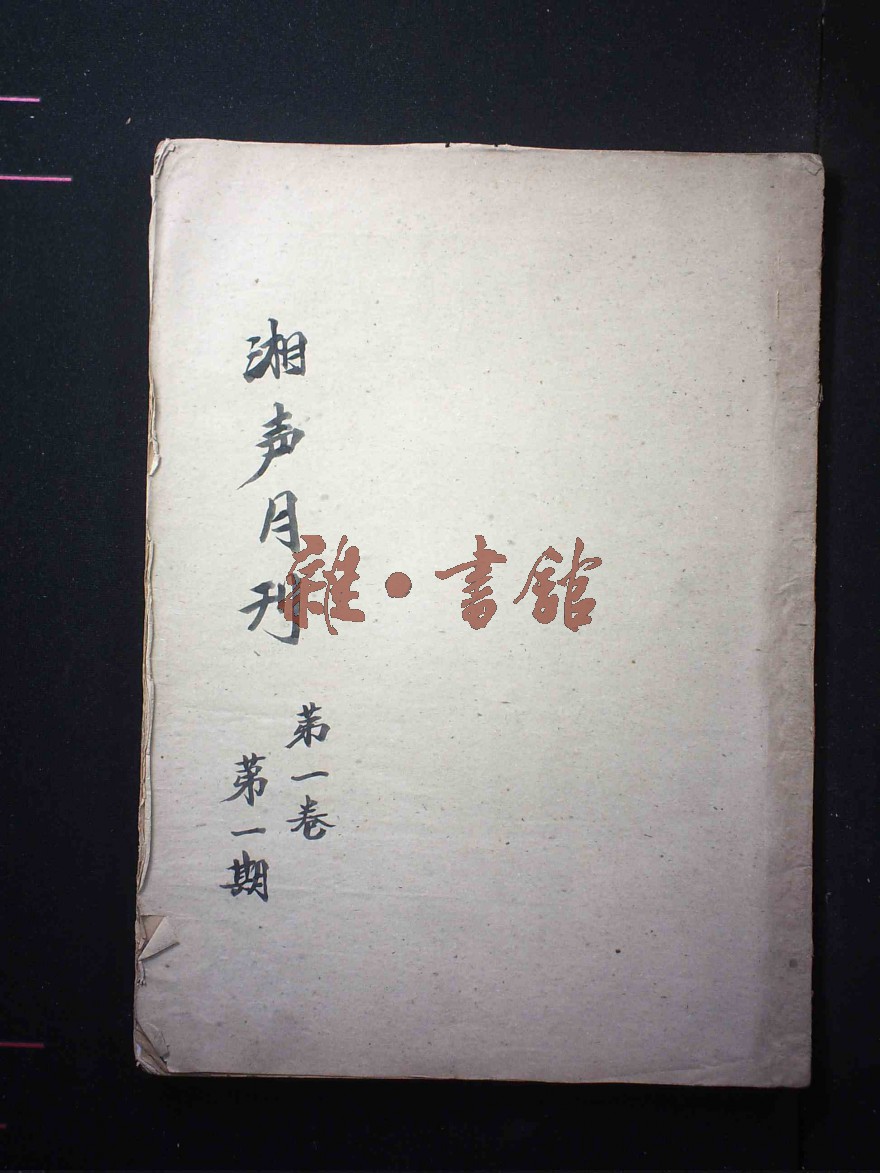 湘声月刊
第一卷
第一期
雜·書館